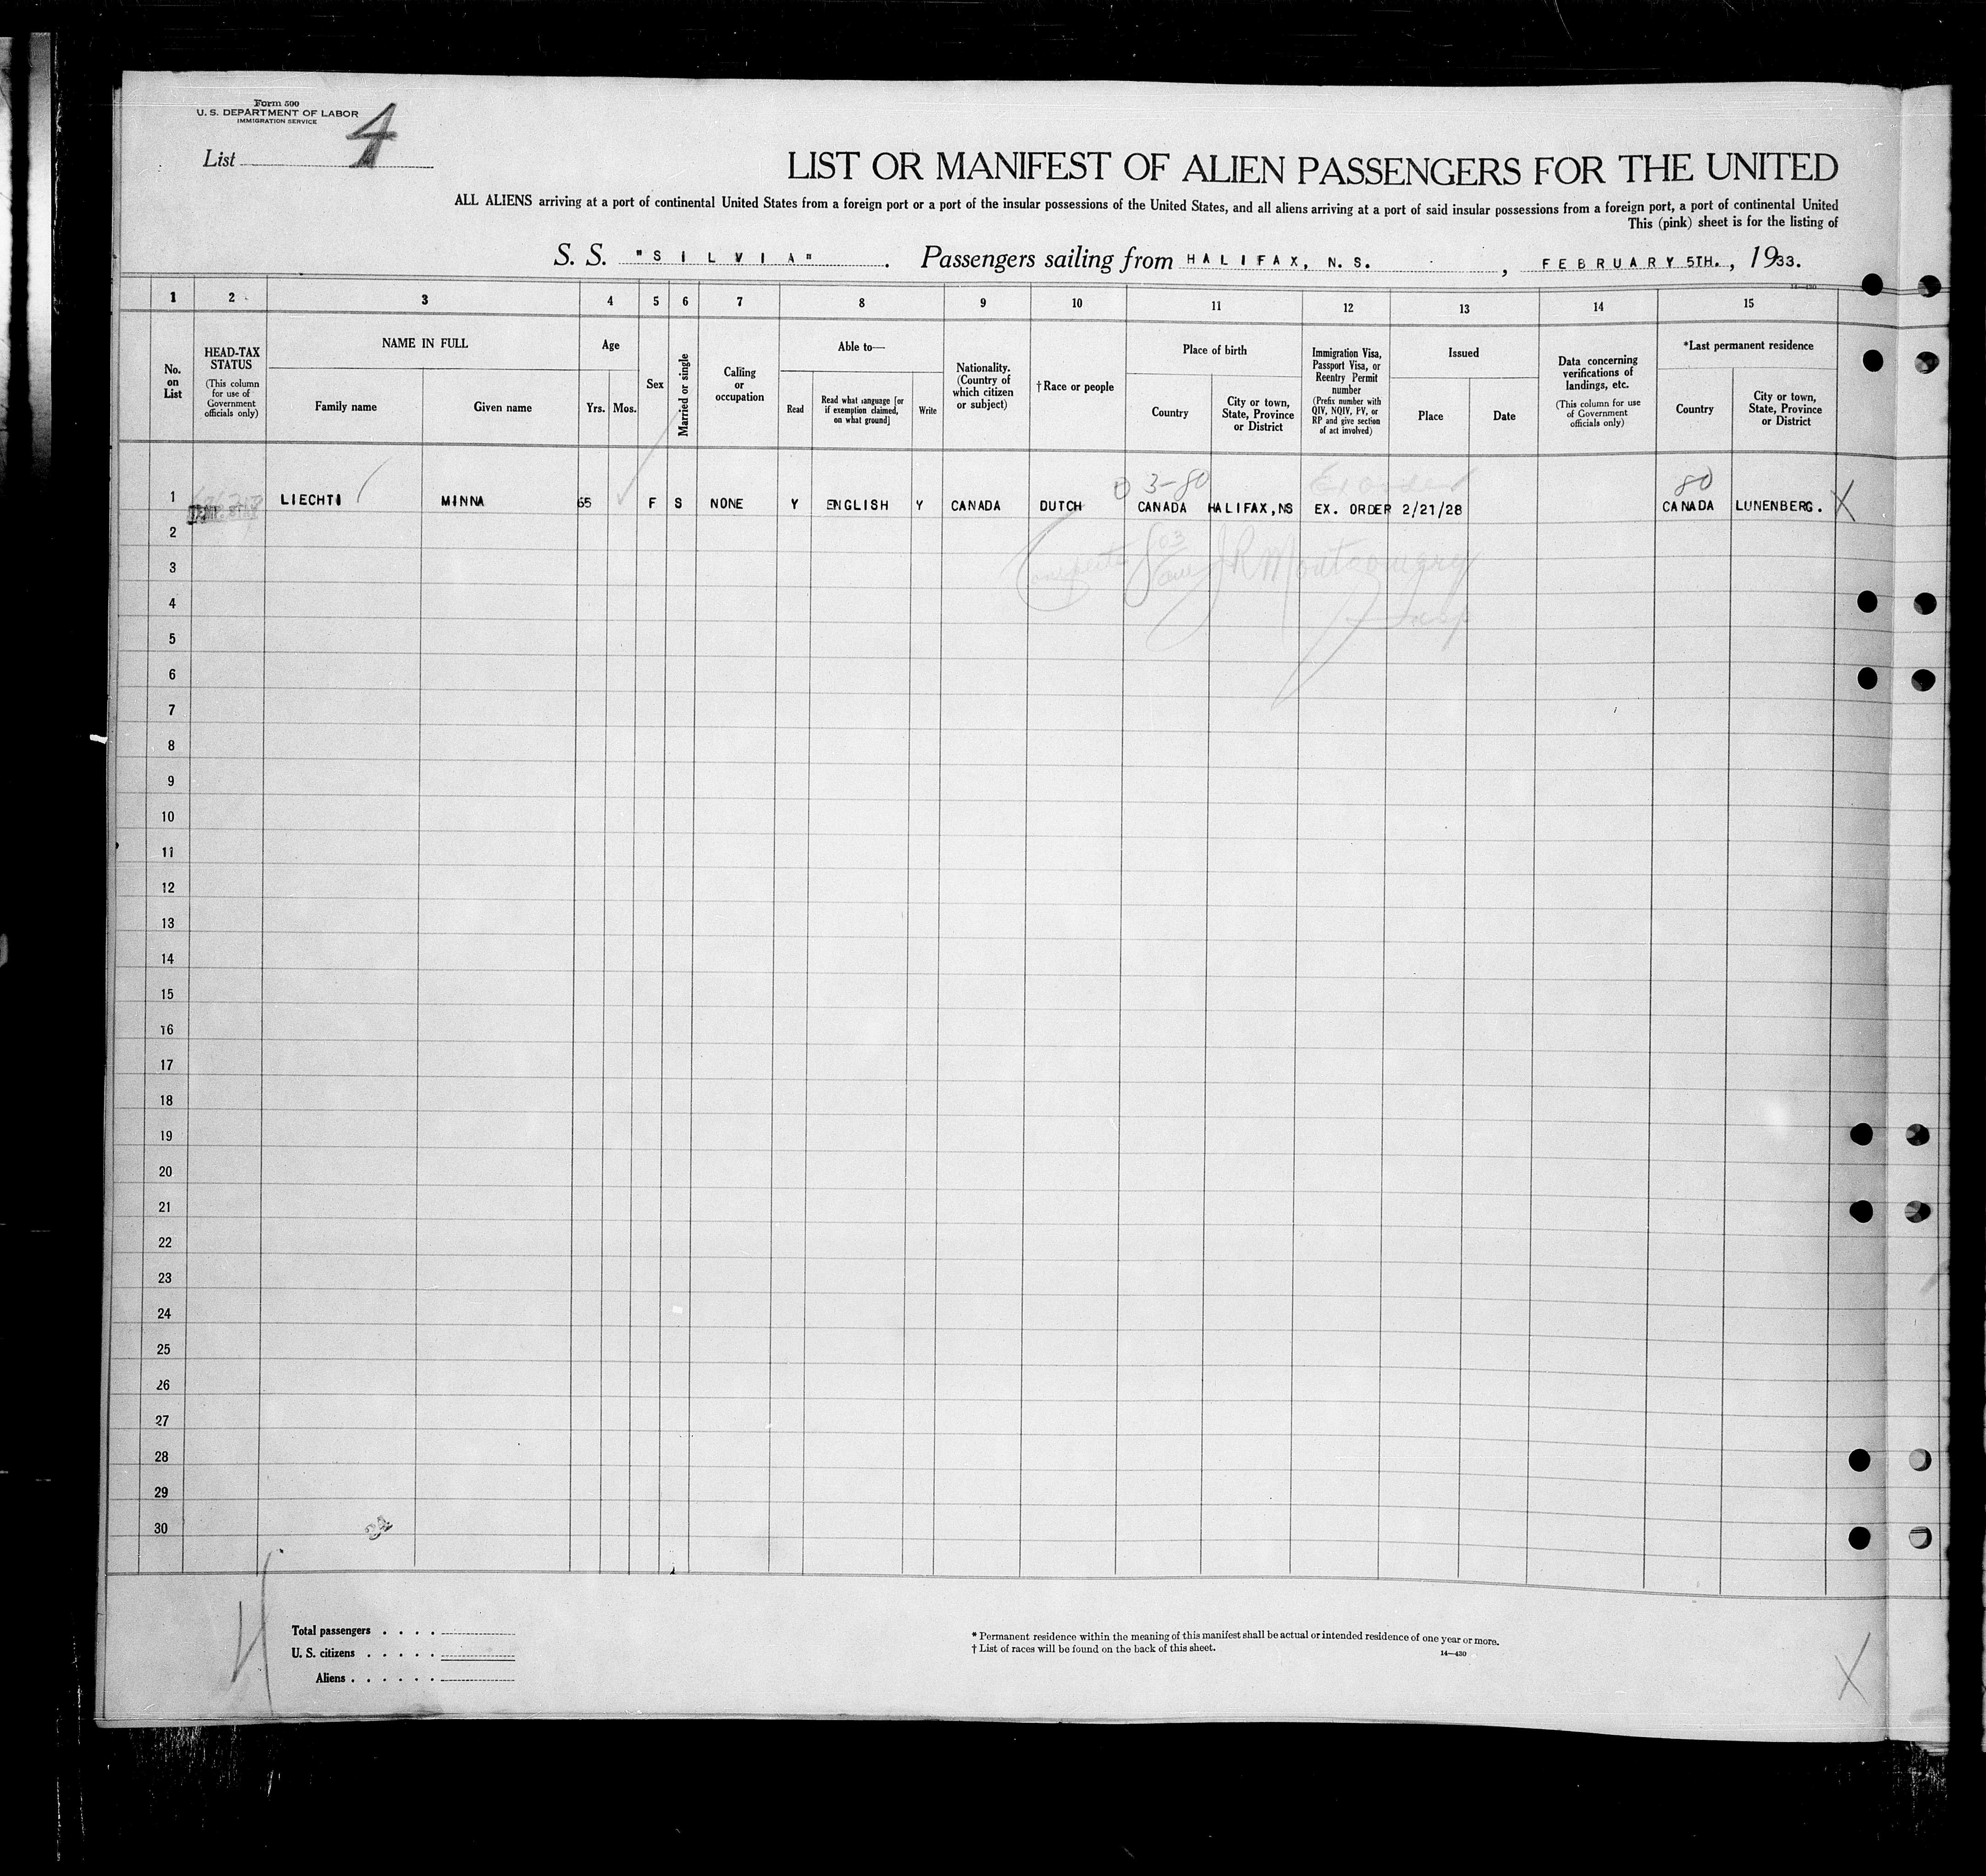 Form 500
U. S. DEPARTMENT OF LABOR
IMMIGRATION SERVICE
List 4
LIST OR MANIFEST OF ALIEN PASSENGERS FOR THE UNITED
ALL ALIENS arriving at a port of continental United States from a foreign port or a port of the insular possessions of the United States, and all aliens arriving at a port of said insular possessions from a foreign port, a port of continental United
This (pink) sheet is for the listing of
S. S. "SILVIA" . Passengers sailing from HALIFAX, N. S. , FEBRUARY 5TH. , 1933.
14—430
1 2 3 4 5 6 7 8 9 10 11 12 13 14 15
No. on List
HEAD-TAX STATUS
(This column for use of Government officials only)
NAME IN FULL
Family name
Given name
Age
Yrs. Mos.
Sex
Married or single
Calling or occupation
Able to—
Read
Read what language [or if exemption claimed, on what ground]
Write
Nationality. (Country of which citizen or subject)
† Race or people
Place of birth
Country
City or town, State, Province or District
Immigration Visa, Passport Visa, or Reentry Permit number
(Prefix number with QIV, NQIV, PV, or RP and give section of act involved)
Issued
Place
Date
Data concerning verifications of landings, etc.
(This column for use of Government officials only)
*Last permanent residence
Country
City or town, State, Province or District
3-80
Ex order
80
1 LIECHTI MINNA 65 F S NONE Y ENGLISH Y CANADA DUTCH CANADA HALIFAX,NS EX. ORDER 2/21/28 CANADA LUNENBERG. X
J R Montgomery
Insp
2
3
4
5
6
7
8
9
10
11
12
13
14
15
16
17
18
19
20
21
22
23
24
25
26
27
28
29
30
24
Total passengers . . . .
U. S. citizens . . . . .
Aliens . . . . . .
* Permanent residence within the meaning of this manifest shall be actual or intended residence of one year or more.
† List of races will be found on the back of this sheet.
14—430
X